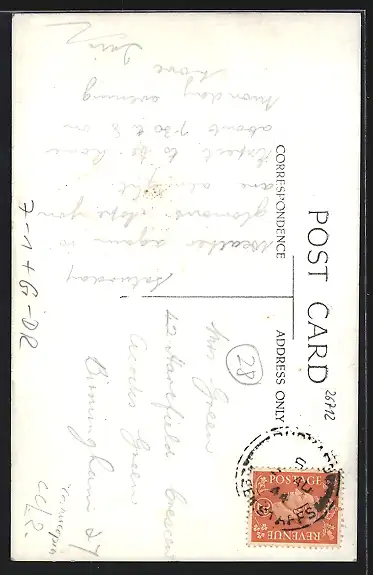 POST CARD
CORRESPONDENCE
ADDRESS ONLY
Saturday
Weather again is
glorious. Hope you
are alright
Expect to be home
about 7.30 to 8 on
Monday evening
love
Mrs Green
Green
Birmingham 27
28
26712
7-1+G-DR
POSTAGE
REVENUE